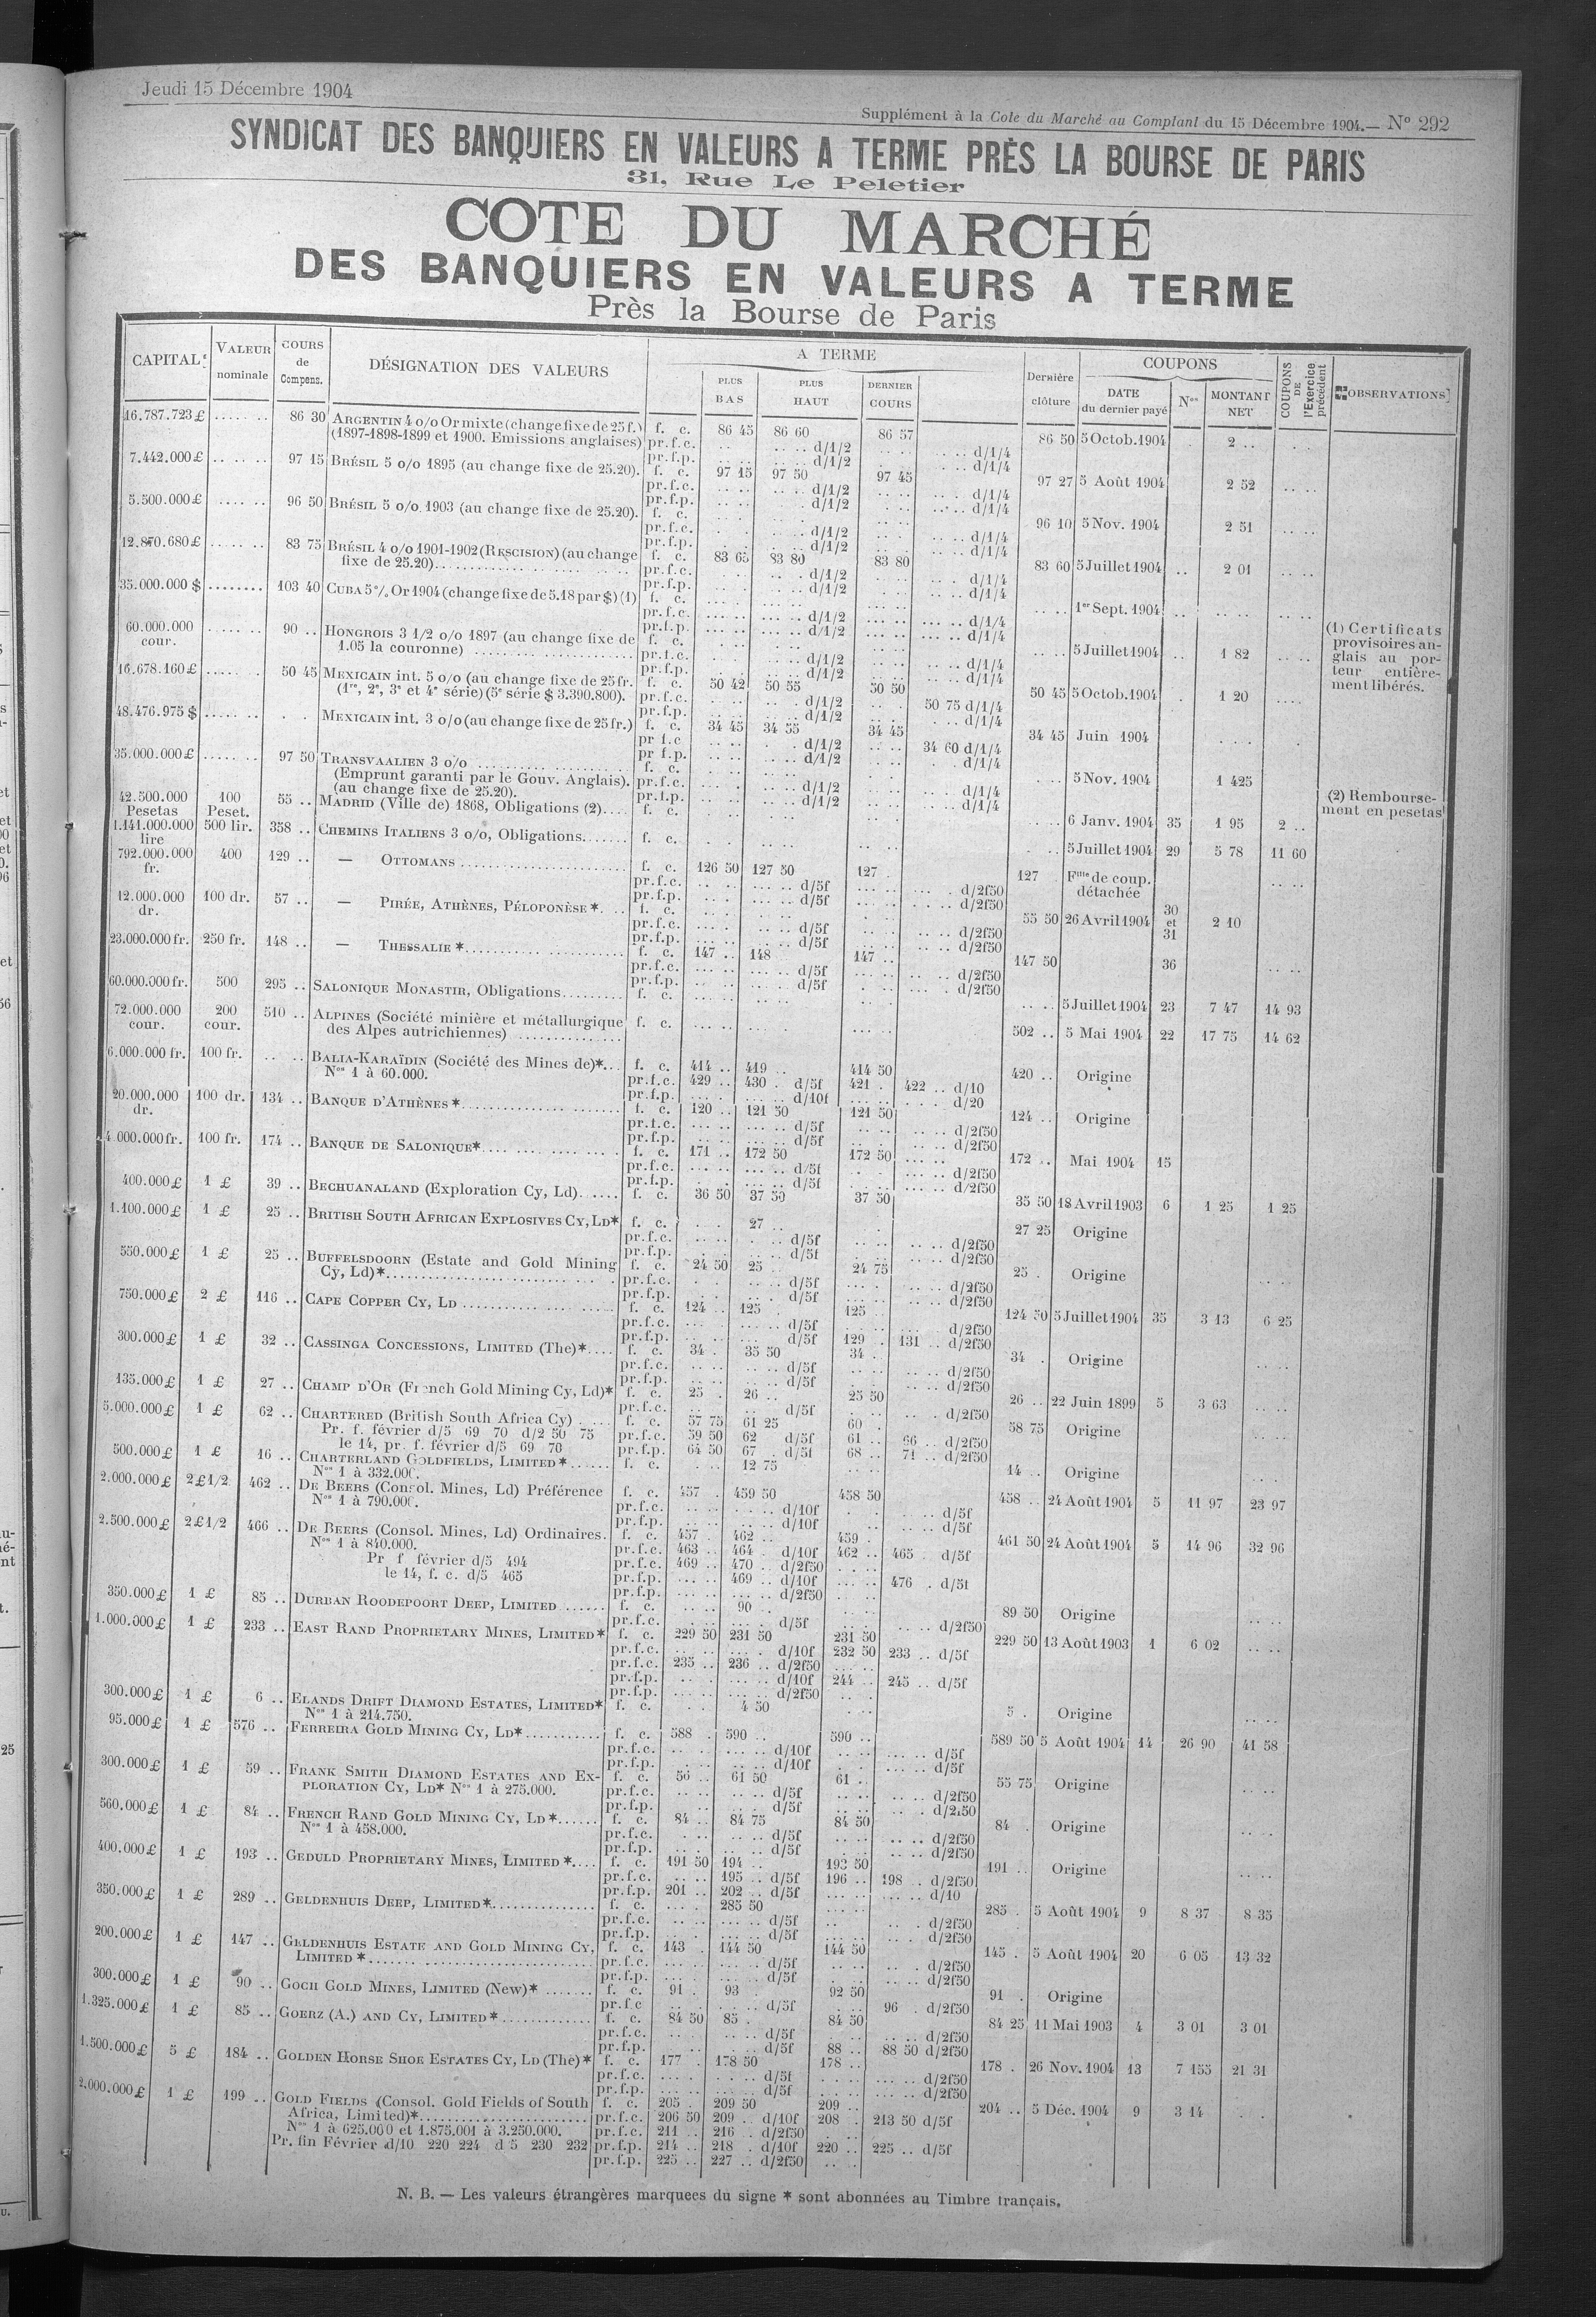 Jeudi 15 Décembre 1904
Supplément à la Cote du Marché au Comptant du 15 Décembre 1904. — N° 292
SYNDICAT DES BANQUIERS EN VALEURS A TERME PRÈS LA BOURSE DE PARIS
31, Rue Le Peletier
COTE DU MARCHÉ
DES BANQUIERS EN VALEURS A TERME
Près la Bourse de Paris
CAPITAL VALEUR nominale COURS de Compens. DÉSIGNATION DES VALEURS A TERME PLUS BAS PLUS HAUT DERNIER COURS Dernière clôture COUPONS DATE du dernier payé Nos MONTANT NET COUPONS DE l'Exercice précédent OBSERVATIONS
16.787.723 £ 86 30 ARGENTIN 4 o/o Or mixte (change fixe de 25 f.) f. c. 86 45 86 60 86 57 86 50 5 Octob. 1904 2 ..
(1897-1898-1899 et 1900. Emissions anglaises) pr.f.c. d/1/2 d/1/4
pr.f.p. d/1/2 d/1/4
7.442.000 £ 97 15 BRÉSIL 5 o/o 1895 (au change fixe de 25.20). f. c. 97 15 97 50 97 45 97 27 5 Août 1904 2 52
pr.f.c. d/1/2 d/1/4
pr.f.p. d/1/2 d/1/4
5.500.000 £ 96 50 BRÉSIL 5 o/o 1903 (au change fixe de 25.20). f. c. 96 10 5 Nov. 1904 2 51
pr.f.c. d/1/2 d/1/4
pr.f.p. d/1/2 d/1/4
12.870.680 £ 83 75 BRÉSIL 4 o/o 1901-1902 (RESCISION) (au change f. c. 83 65 83 80 83 80 83 60 5 Juillet 1904 2 01
fixe de 25.20) pr.f.c. d/1/2 d/1/4
pr.f.p. d/1/2 d/1/4
35.000.000 $ 103 40 CUBA 5 % Or 1904 (change fixe de 5.18 par $) (1) f. c. 1er Sept. 1904
pr.f.c. d/1/2 d/1/4
pr.f.p. d/1/2 d/1/4
60.000.000 cour. 90 .. HONGROIS 3 1/2 o/o 1897 (au change fixe de f. c. 5 Juillet 1904 1 82
1.05 la couronne) pr.f.c. d/1/2 d/1/4
pr.f.p. d/1/2 d/1/4
(1) Certificats
provisoires an-
glais au por-
teur entière-
ment libérés.
16.678.160 £ 50 45 MEXICAIN int. 5 o/o (au change fixe de 25 fr. f. c. 50 42 50 55 50 50 50 45 5 Octob. 1904 1 20
(1re, 2e, 3e et 4e série) (5e série $ 3.390.800). pr.f.c. d/1/2 50 75 d/1/4
pr.f.p. d/1/2 d/1/4
48.476.975 $ MEXICAIN int. 3 o/o (au change fixe de 25 fr.) f. c. 34 45 34 55 34 45 34 45 Juin 1904
pr.f.c. d/1/2 34 60 d/1/4
pr.f.p. d/1/2 d/1/4
35.000.000 £ 97 50 TRANSVAALIEN 3 o/o f. c. 5 Nov. 1904 1 425
(Emprunt garanti par le Gouv. Anglais). pr.f.c. d/1/2 d/1/4
(au change fixe de 25.20). pr.f.p. d/1/2 d/1/4
42.500.000 Pesetas 100 Peset. 55 .. MADRID (Ville de) 1868, Obligations (2) f. c. 6 Janv. 1904 35 1 95 2 ..
(2) Rembourse-
ment en pesetas
1.141.000.000 lire 500 lir. 358 .. CHEMINS ITALIENS 3 o/o, Obligations f. c. 5 Juillet 1904 29 5 78 11 60
792.000.000 fr. 400 129 .. — OTTOMANS f. c. 126 50 127 50 127 127 Flle de coup. détachée
pr.f.c. d/5f d/2f50
pr.f.p. d/5f d/2f50
12.000.000 dr. 100 dr. 57 .. — PIRÉE, ATHÈNES, PÉLOPONÈSE * f. c. 55 50 26 Avril 1904 30 et 31 2 10
pr.f.c. d/5f d/2f50
pr.f.p. d/5f d/2f50
23.000.000 fr. 250 fr. 148 .. — THESSALIE * f. c. 147 .. 148 147 .. 147 50 36
pr.f.c. d/5f d/2f50
pr.f.p. d/5f d/2f50
60.000.000 fr. 500 295 .. SALONIQUE MONASTIR, Obligations f. c. 5 Juillet 1904 23 7 47 14 93
72.000.000 cour. 200 cour. 510 .. ALPINES (Société minière et métallurgique f. c. 502 .. 5 Mai 1904 22 17 75 14 62
des Alpes autrichiennes)
6.000.000 fr. 100 fr. BALIA-KARAÏDIN (Société des Mines de)* f. c. 414 .. 419 .. 414 50 420 .. Origine
Nos 1 à 60.000. pr.f.c. 429 .. 430 d/5f 421 422 .. d/10
pr.f.p. d/10f d/20
20.000.000 dr. 100 dr. 134 .. BANQUE D'ATHÈNES * f. c. 120 .. 121 50 121 50 124 .. Origine
pr.f.c. d/5f d/2f50
pr.f.p. d/5f d/2f50
4.000.000 fr. 100 fr. 174 .. BANQUE DE SALONIQUE* f. c. 171 .. 172 50 172 50 172 .. Mai 1904 15
pr.f.c. d/5f d/2f50
pr.f.p. d/5f d/2f50
400.000 £ 1 £ 39 .. BECHUANALAND (Exploration Cy, Ld) f. c. 36 50 37 50 37 50 35 50 18 Avril 1903 6 1 25 1 25
1.100.000 £ 1 £ 25 .. BRITISH SOUTH AFRICAN EXPLOSIVES CY, LD* f. c. 27 .. 27 25 Origine
pr.f.c. d/5f d/2f50
pr.f.p. d/5f d/2f50
550.000 £ 1 £ 25 .. BUFFELSDOORN (Estate and Gold Mining f. c. 24 50 25 24 75 25 Origine
Cy, Ld)* pr.f.c. d/5f d/2f50
pr.f.p. d/5f d/2f50
750.000 £ 2 £ 116 .. CAPE COPPER CY, LD f. c. 124 .. 125 125 124 50 5 Juillet 1904 35 3 13 6 25
pr.f.c. d/5f d/2f50
pr.f.p. d/5f 129 131 .. d/2f50
300.000 £ 1 £ 32 .. CASSINGA CONCESSIONS, LIMITED (The)* f. c. 34 35 50 34 34 Origine
pr.f.c. d/5f d/2f50
pr.f.p. d/5f d/2f50
135.000 £ 1 £ 27 .. CHAMP D'OR (French Gold Mining Cy, Ld)* f. c. 25 26 .. 25 50 26 .. 22 Juin 1899 5 3 63
pr.f.c. d/5f d/2f50
5.000.000 £ 1 £ 62 .. CHARTERED (British South Africa Cy) f. c. 57 75 61 25 60 58 75 Origine
Pr. f. février d/5 69 70 d/2 50 75 pr.f.c. 59 50 62 d/5f 61 .. 66 .. d/2f50
le 14, pr. f. février d/5 69 70 pr.f.p. 64 50 67 d/5f 68 71 .. d/2f50
500.000 £ 1 £ 16 .. CHARTERLAND GOLDFIELDS, LIMITED * f. c. 12 75 14 .. Origine
Nos 1 à 332.000.
2.000.000 £ 2 £ 1/2 462 .. DE BEERS (Consol. Mines, Ld) Préférence f. c. 457 459 50 458 50 458 .. 24 Août 1904 5 11 97 23 97
Nos 1 à 790.000. pr.f.c. d/10f d/5f
pr.f.p. d/10f d/5f
2.500.000 £ 2 £ 1/2 466 .. DE BEERS (Consol. Mines, Ld) Ordinaires. f. c. 457 462 .. 459 461 50 24 Août 1904 5 14 96 32 96
Nos 1 à 840.000. pr.f.c. 463 .. 464 d/10f 462 .. 465 d/5f
Pr f février d/5 494 pr.f.c. 469 .. 470 .. d/2f50
le 14, f. c. d/5 465 pr.f.p. 469 .. d/10f 476 d/5f
pr.f.p. d/2f50
350.000 £ 1 £ 85 .. DURBAN ROODEPOORT DEEP, LIMITED f. c. 90 89 50 Origine
pr.f.c. d/5f d/2f50
1.000.000 £ 1 £ 233 .. EAST RAND PROPRIETARY MINES, LIMITED* f. c. 229 50 231 50 231 50 229 50 13 Août 1903 1 6 02
pr.f.c. d/10f 232 50 233 .. d/5f
pr.f.c. 235 .. 236 .. d/2f50
pr.f.p. d/10f 244 .. 245 .. d/5f
pr.f.p. d/2f50
300.000 £ 1 £ 6 .. ELANDS DRIFT DIAMOND ESTATES, LIMITED* f. c. 4 50 5 Origine
Nos 1 à 214.750.
95.000 £ 1 £ 576 .. FERREIRA GOLD MINING CY, LD* f. c. 588 590 .. 590 .. 589 50 5 Août 1904 14 26 90 41 58
pr.f.c. d/10f d/5f
pr.f.p. d/10f d/5f
300.000 £ 1 £ 59 .. FRANK SMITH DIAMOND ESTATES AND EX- f. c. 56 .. 61 50 61 .. 55 75 Origine
PLORATION CY, LD* Nos 1 à 275.000. pr.f.c. d/5f d/2f50
pr.f.p. d/5f d/2f50
560.000 £ 1 £ 84 .. FRENCH RAND GOLD MINING CY, LD* f. c. 84 .. 84 75 84 50 84 Origine
Nos 1 à 458.000. pr.f.c. d/5f d/2f50
pr.f.p. d/5f d/2f50
400.000 £ 1 £ 193 .. GEDULD PROPRIETARY MINES, LIMITED * f. c. 191 50 194 .. 193 50 191 .. Origine
pr.f.c. 195 .. d/5f 196 .. 198 d/2f50
pr.f.p. 201 .. 202 .. d/5f d/10
350.000 £ 1 £ 289 .. GELDENHUIS DEEP, LIMITED* f. c. 285 50 285 5 Août 1904 9 8 37 8 35
pr.f.c. d/5f d/2f50
pr.f.p. d/5f d/2f50
200.000 £ 1 £ 147 .. GELDENHUIS ESTATE AND GOLD MINING CY, f. c. 143 144 50 144 50 145 5 Août 1904 20 6 05 13 32
LIMITED * pr.f.c. d/5f d/2f50
pr.f.p. d/5f d/2f50
300.000 £ 1 £ 90 .. GOCH GOLD MINES, LIMITED (New)* f. c. 91 93 92 50 91 Origine
pr.f.c d/5f 96 d/2f50
1.325.000 £ 1 £ 85 .. GOERZ (A.) AND CY, LIMITED * f. c. 84 50 85 84 50 84 25 11 Mai 1903 4 3 01 3 01
pr.f.c. d/5f d/2f50
pr.f.p. d/5f 88 .. 88 50 d/2f50
1.500.000 £ 5 £ 184 .. GOLDEN HORSE SHOE ESTATES CY, LD (The)* f. c. 177 178 50 178 .. 178 26 Nov. 1904 13 7 155 21 31
pr.f.c. d/5f d/2f50
pr.f.p. d/5f d/2f50
2.000.000 £ 1 £ 199 .. GOLD FIELDS (Consol. Gold Fields of South f. c. 205 209 50 209 .. 204 .. 5 Déc. 1904 9 3 14
Africa, Limited)* pr.f.c. 206 50 209 .. d/10f 208 213 50 d/5f
Nos 1 à 625.000 et 1.875.001 à 3.250.000. pr.f.c. 211 .. 216 .. d/2f50
Pr. fin Février d/10 220 224 d 5 230 232 pr.f.p. 214 .. 218 d/10f 220 .. 225 .. d/5f
pr.f.p. 225 .. 227 .. d/2f50
N. B. — Les valeurs étrangères marquees du signe * sont abonnées au Timbre français.